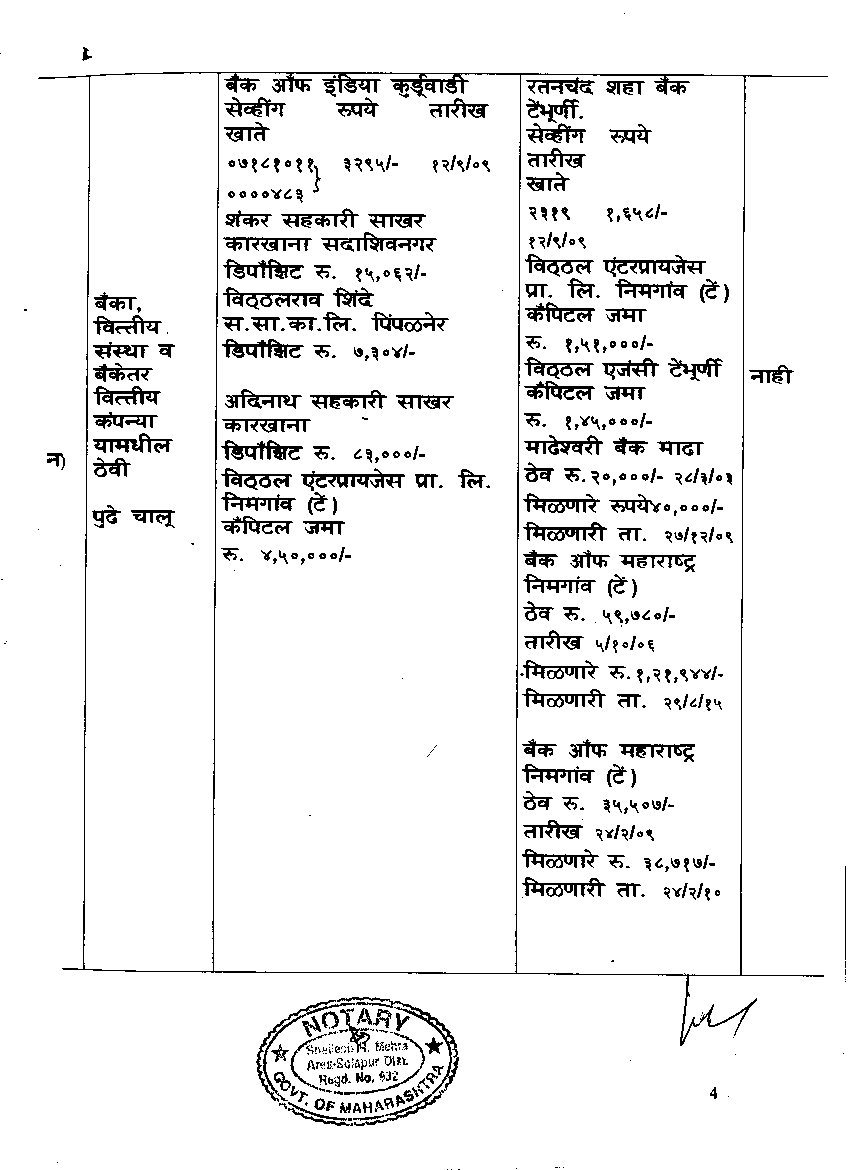 न)
बैंका,
वित्तीय
संस्था व
बैकेतर
वित्तीय
कंपन्या
यामधील
ठेवी
पुढे चालू
बैंक ऑफ इंडिया कुर्डूवाडी
सेव्हींग रुपये तारीख
खाते
०७१८१०११ ३२९५/- १२/९/०९
००००४८३
शंकर सहकारी साखर
कारखाना सदाशिवनगर
डिपॉझिट रु. १५,०६२/-
विठ्ठलराव शिंदे
स.सा.का.लि. पिंपळनेर
डिपॉझिट रु. ७,३०४/-
आदिनाथ सहकारी साखर
कारखाना
डिपॉझिट रु. ८३,०००/-
विठ्ठल एंटरप्रायजेस प्रा. लि.
निमगांव (टें)
कॅपिटल जमा
रु. ४,५०,०००/-
रतनचंद शहा बैंक
टेंभूर्णी.
सेव्हींग रुपये
तारीख
खाते
२३१९ १,६५८/-
१२/९/०९
विठ्ठल एंटरप्रायजेस
प्रा. लि. निमगांव (टें)
कॅपिटल जमा
रु. १,५१,०००/-
विठ्ठल एजंसी टेंभूर्णी
कॅपिटल जमा
रु. १,४५,०००/-
माढेश्वरी बैंक माढा
ठेव रु.२०,०००/- २८/३/०३
मिळणारे रुपये४०,०००/-
मिळणारी ता. २७/१२/०९
बैंक ऑफ महाराष्ट्र
निमगांव (टें)
ठेव रु. ५९,७८०/-
तारीख ५/१०/०६
मिळणारे रु.१,२१,९४४/-
मिळणारी ता. २९/८/१५
बैंक ऑफ महाराष्ट्र
निमगांव (टें)
ठेव रु. ३५,५०७/-
तारीख २४/२/०९
मिळणारे रु. ३८,७१७/-
मिळणारी ता. २४/२/१०
नाही
NOTARY
Mehta
Area-Solapur Dist.
Regd. No. 932
GOVT. OF MAHARASHTRA
4